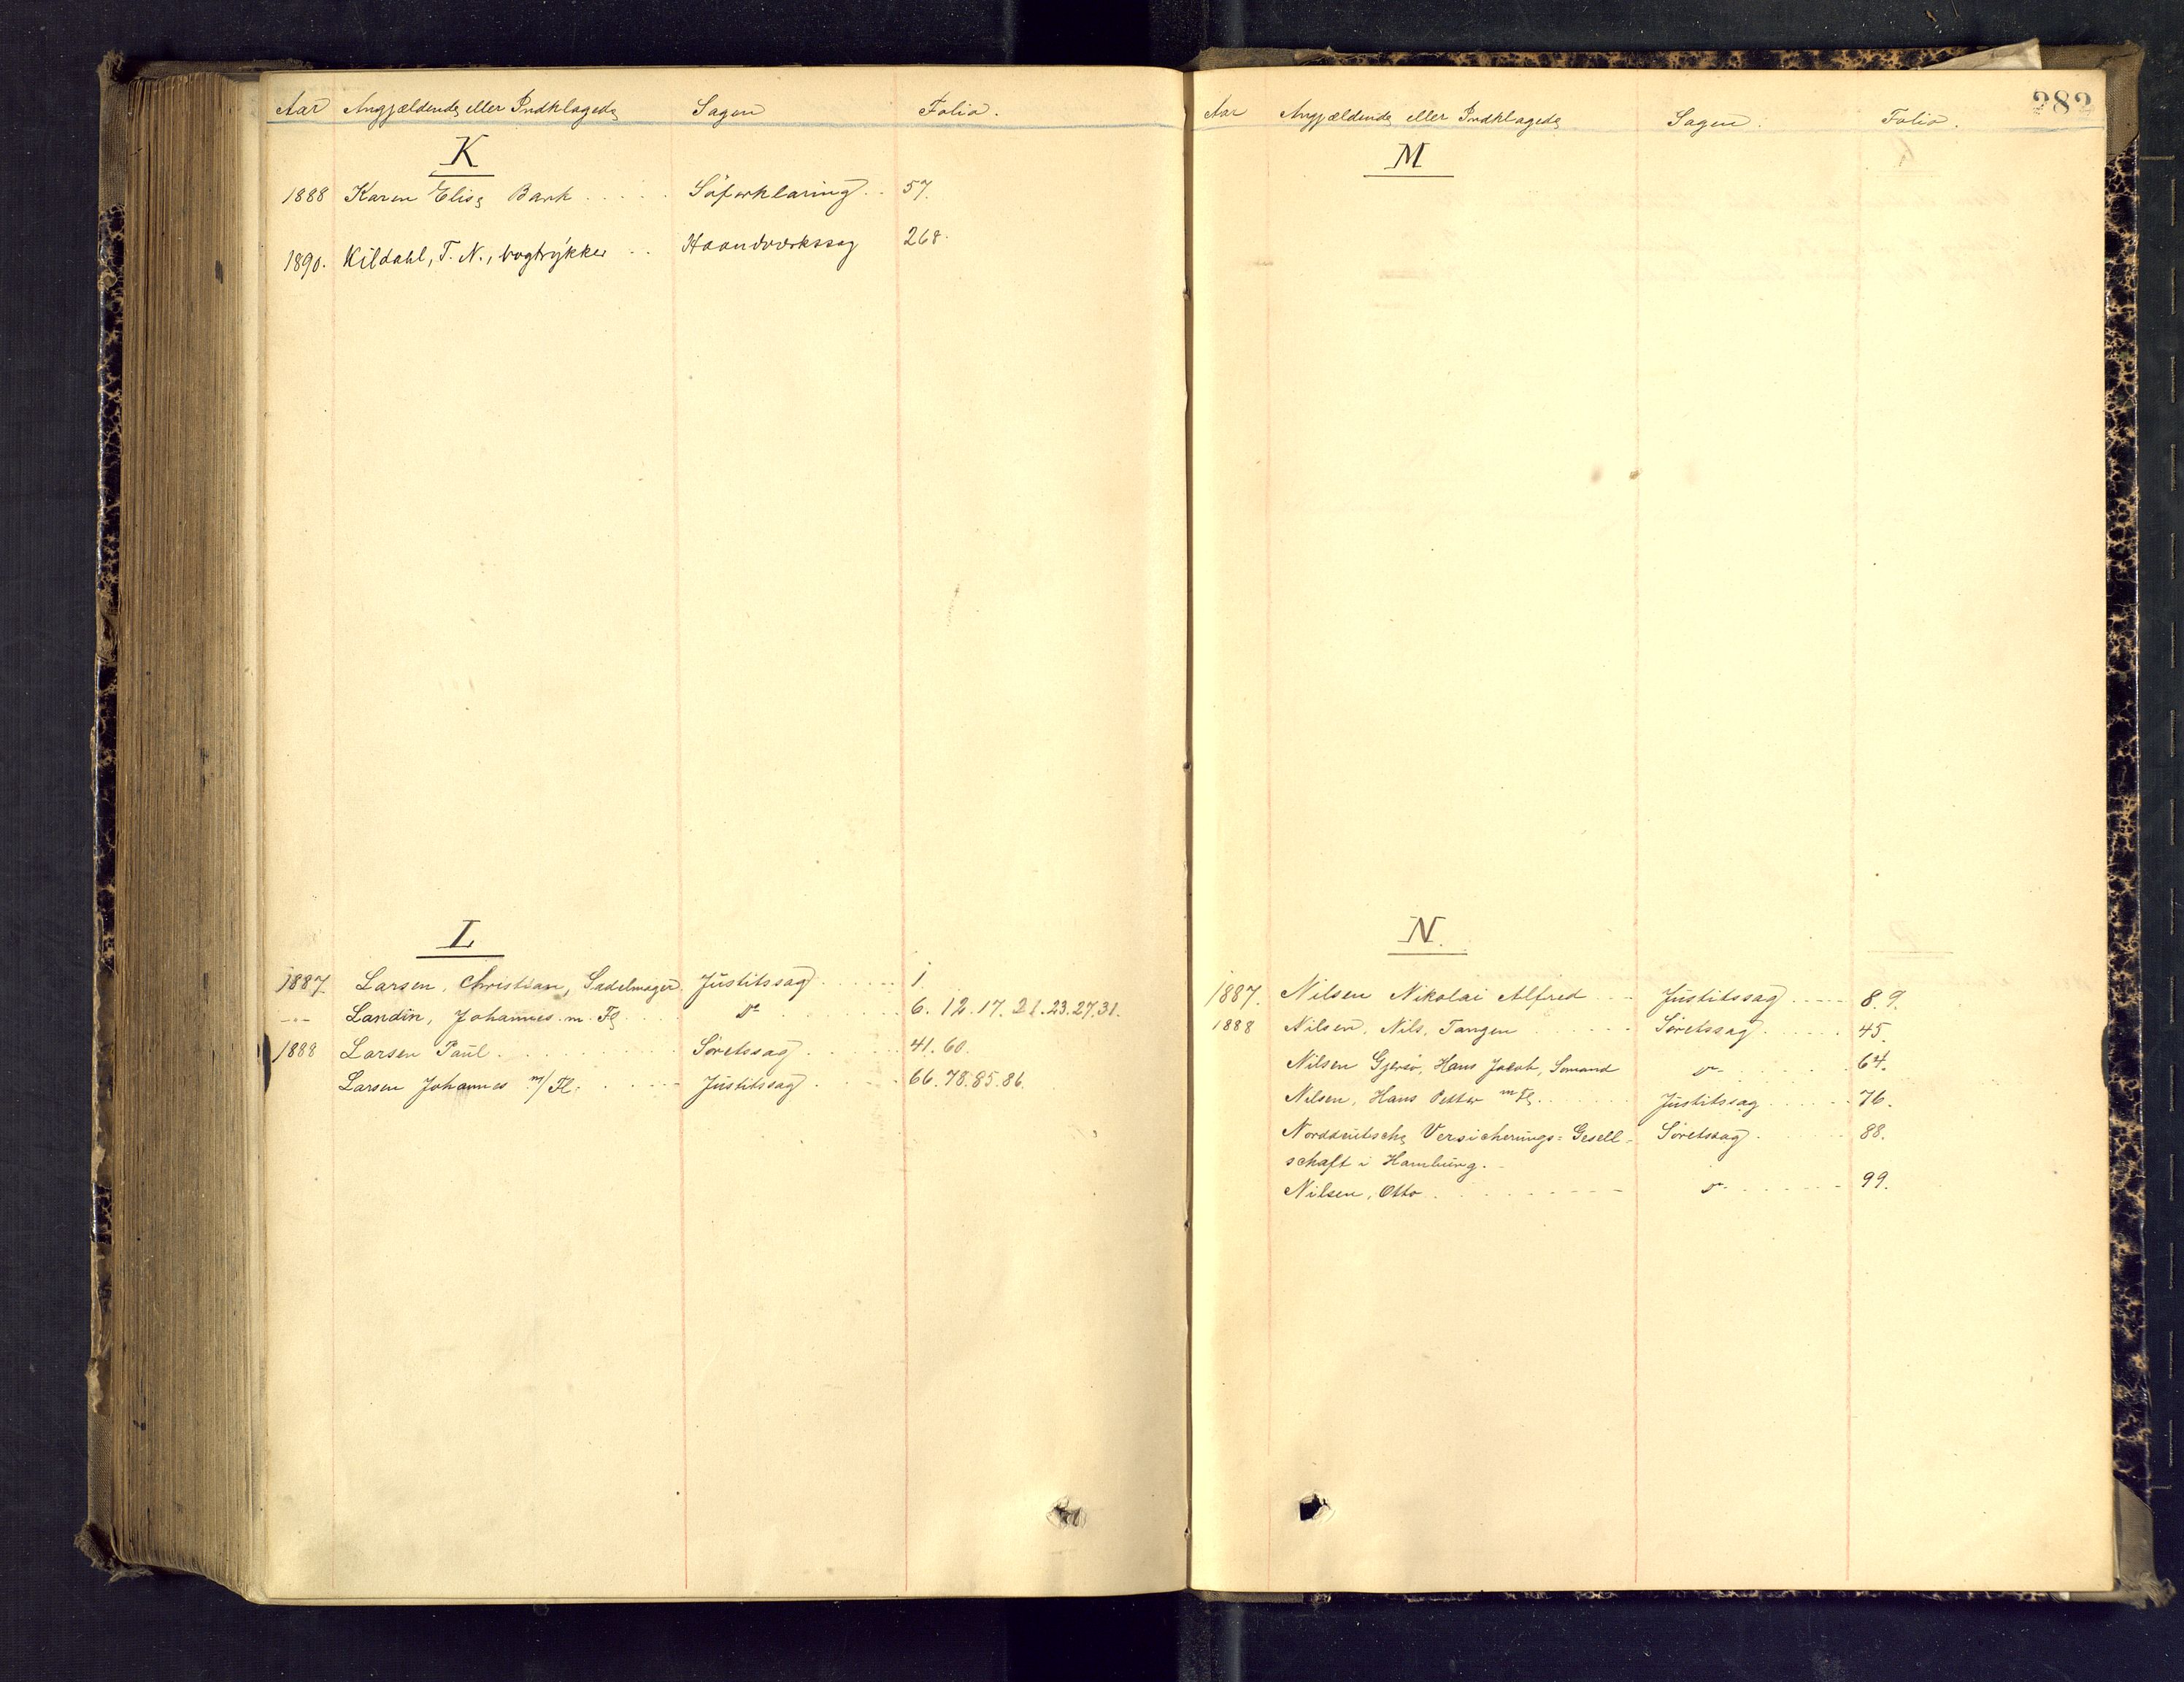 Aar Angjældende eller Indklagede Sagen Folio.
K
1888 Karen Elise Bark ..... Söforklaring .. 57.
1890. Kildahl, T. N., bogtrykker .. Haandværkssag 268.
L
1887 Larsen, Christian, Sadelmager. Justitssag ..... 1.
-"- Landin, Johannes m. Fl. .... Do ..... 6. 12. 17. 21. 23. 27. 31.
1888 Larsen Paul ..... Søretssag ..... 41. 60.
Larsen Johannes m/Fl. ..... Justitssag ..... 66. 78. 85. 86.
282
Aar Angjældende eller Indklagede Sagen. Folio.
M
N.
1887. Nilsen Nikolai Alfred ... Justitssag ..... 8. 9.
1888 Nilsen, Nils, Tangen ..... Søretssag ..... 45.
Nilsen Gjersø, Hans Jacob, Sømand Do ..... 64.
Nilsen, Hans Petter m Fl. ..... Justitssag ..... 76.
Norddeutsche Versicherungs=Gesell= Søretssag ..... 88.
schaft i Hamburg.
Nilsen, Otto ..... Do ..... 99.